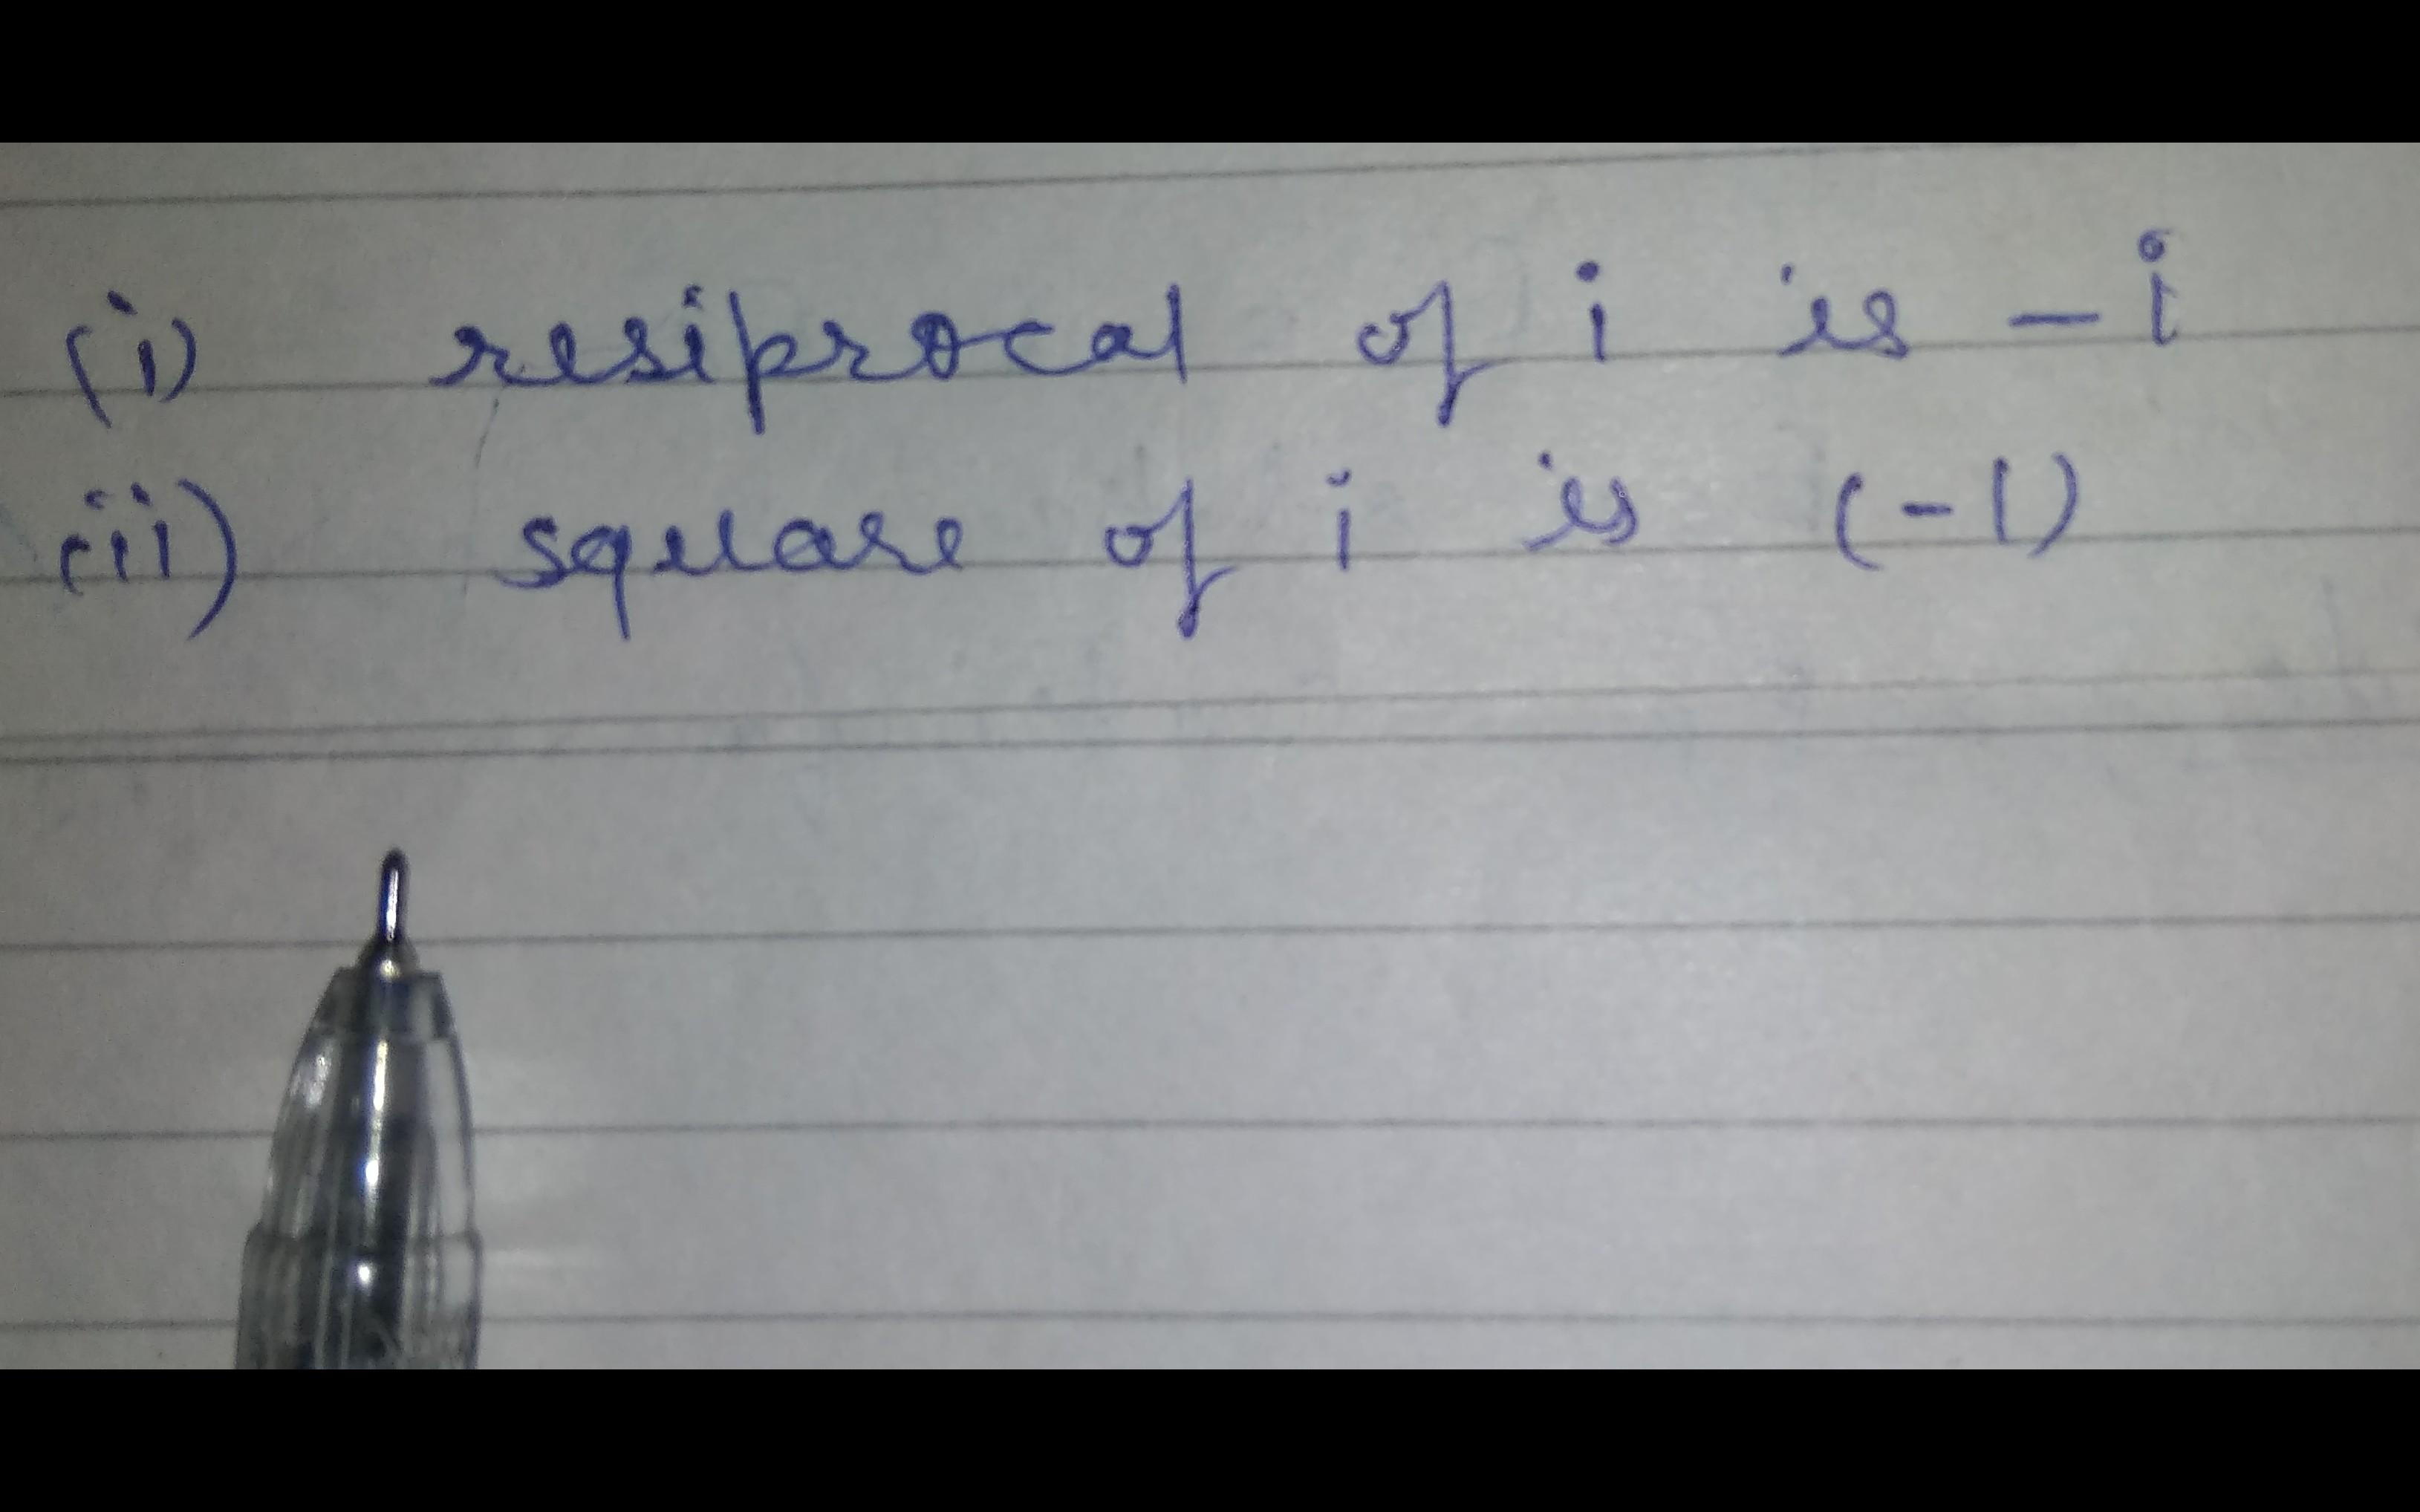 (i) resiprocal of i is - i
(ii) square of i is (-1)